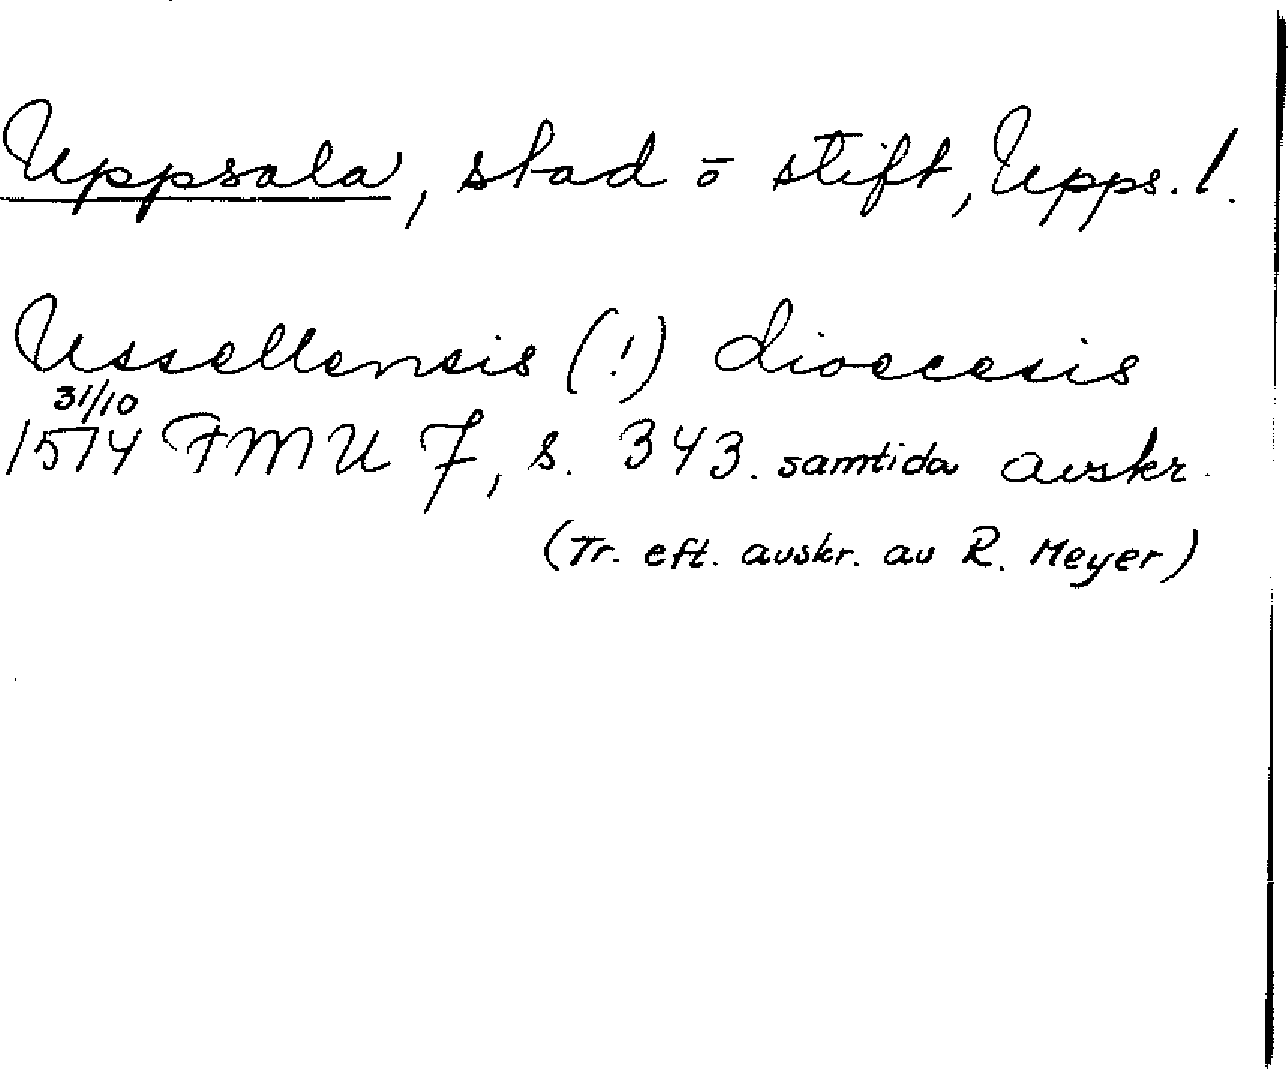 Uppsala, stad o stift, Upps. l.
Ussellensis (!) dioecesis
31/10
1574 FMU 7, s. 343. samtida avskr.
(Tr. eft. avskr. av R. Meyer)